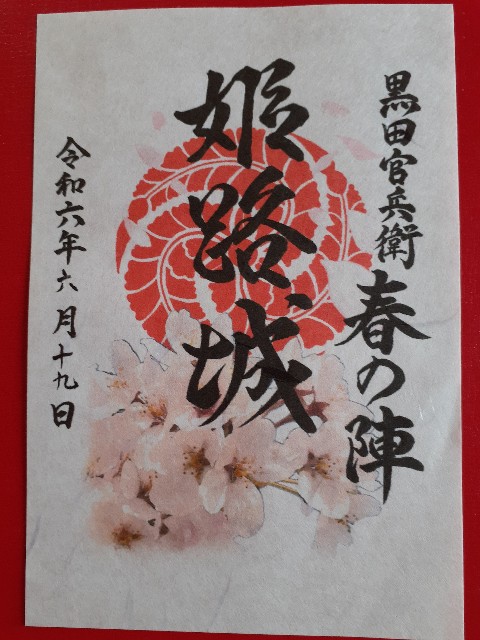 黒田官兵衛春の陣
姫路城
令和六年六月十九日